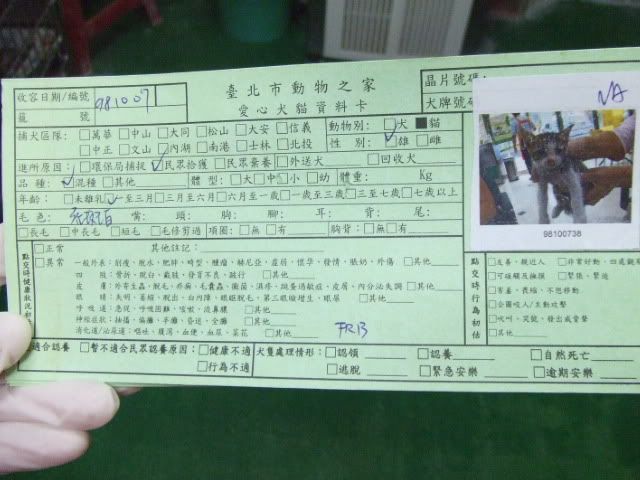 臺北市動物之家
愛心犬貓資料卡
收容日期/編號 981007
籠 號
晶片號碼:
犬牌號碼
NA
98100738
捕犬區隊: □萬華 □中山 □大同 □松山 □大安 □信義
□中正 □文山 □內湖 □南港 □士林 □北投
動物別: □犬 ■貓
性 別: ☑雄 □雌
進所原因: □環保局捕捉 ☑民眾拾獲 □民眾棄養 □外送犬 □回收犬
品 種: ☑混種 □其他 體 型: □大 □中 □小 □幼 體重: Kg
年齡: □未離乳 ☑一至三月 □三月至六月 □六月至一歲 □一歲至三歲 □三至七歲 □七歲以上
毛 色: 背: 頭: 胸: 腳: 耳: 背: 尾:
□長毛 □中長毛 □短毛 □毛修剪過 項圈: □無 □有 胸背: □無 □有
點交時健康狀況初
□正常 其他註記:
□異常 一般外表: 消瘦、脫水、肥胖、畸型、腫瘤、赫尼亞、虛弱、懷孕、發情、脹奶、外傷 □其他
四 肢: 骨折、脫臼、截肢、發育不良、跛行 □其他
皮 膚: 外寄生蟲、脫毛、疥癬、毛囊蟲、黴菌、濕疹、跳蚤過敏症、皮屑、內分泌失調 □其他
眼 睛: 失明、萎縮、脫出、白內障、眼瞼脫毛、第三眼瞼增生、眼屎 □其他
呼 吸 道: 急促、呼吸困難、咳嗽、流鼻膿 □其他
神經症狀: 抽搐、偏癱、半癱、昏迷、全癱 □其他
消化道/泌尿道: 嘔吐、腹瀉、血便、血尿、菜花 □其他
FR13
點交時行為初估
□友善、親近人 □非常好動、四處觀
□可碰觸及撫摸 □緊張、緊迫
□害羞、畏縮、不思移動
□企圖咬人/主動攻擊
□吹叫、哭號、發出威脅聲
□其他
適合認養 □暫不適合民眾認養原因: □健康不適
□行為不適
犬隻處理情形: □認領 □認養 □自然死亡
□逃脫 □緊急安樂 □逾期安樂